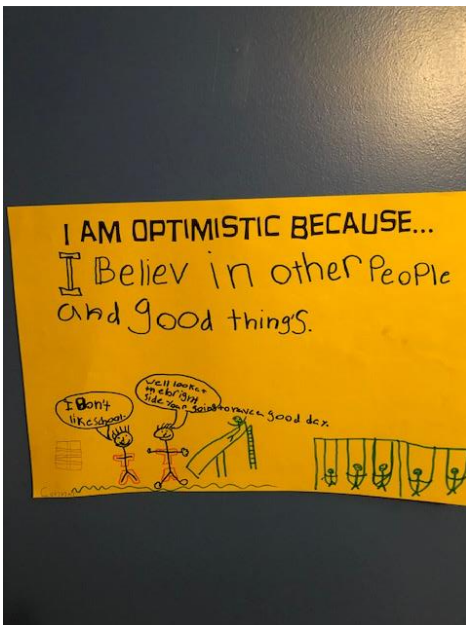 I AM OPTIMISTIC BECAUSE...
I Believ in other People
and good thing's.
I Don't
like school.
Well look at
the bright
side your going to have a good day.